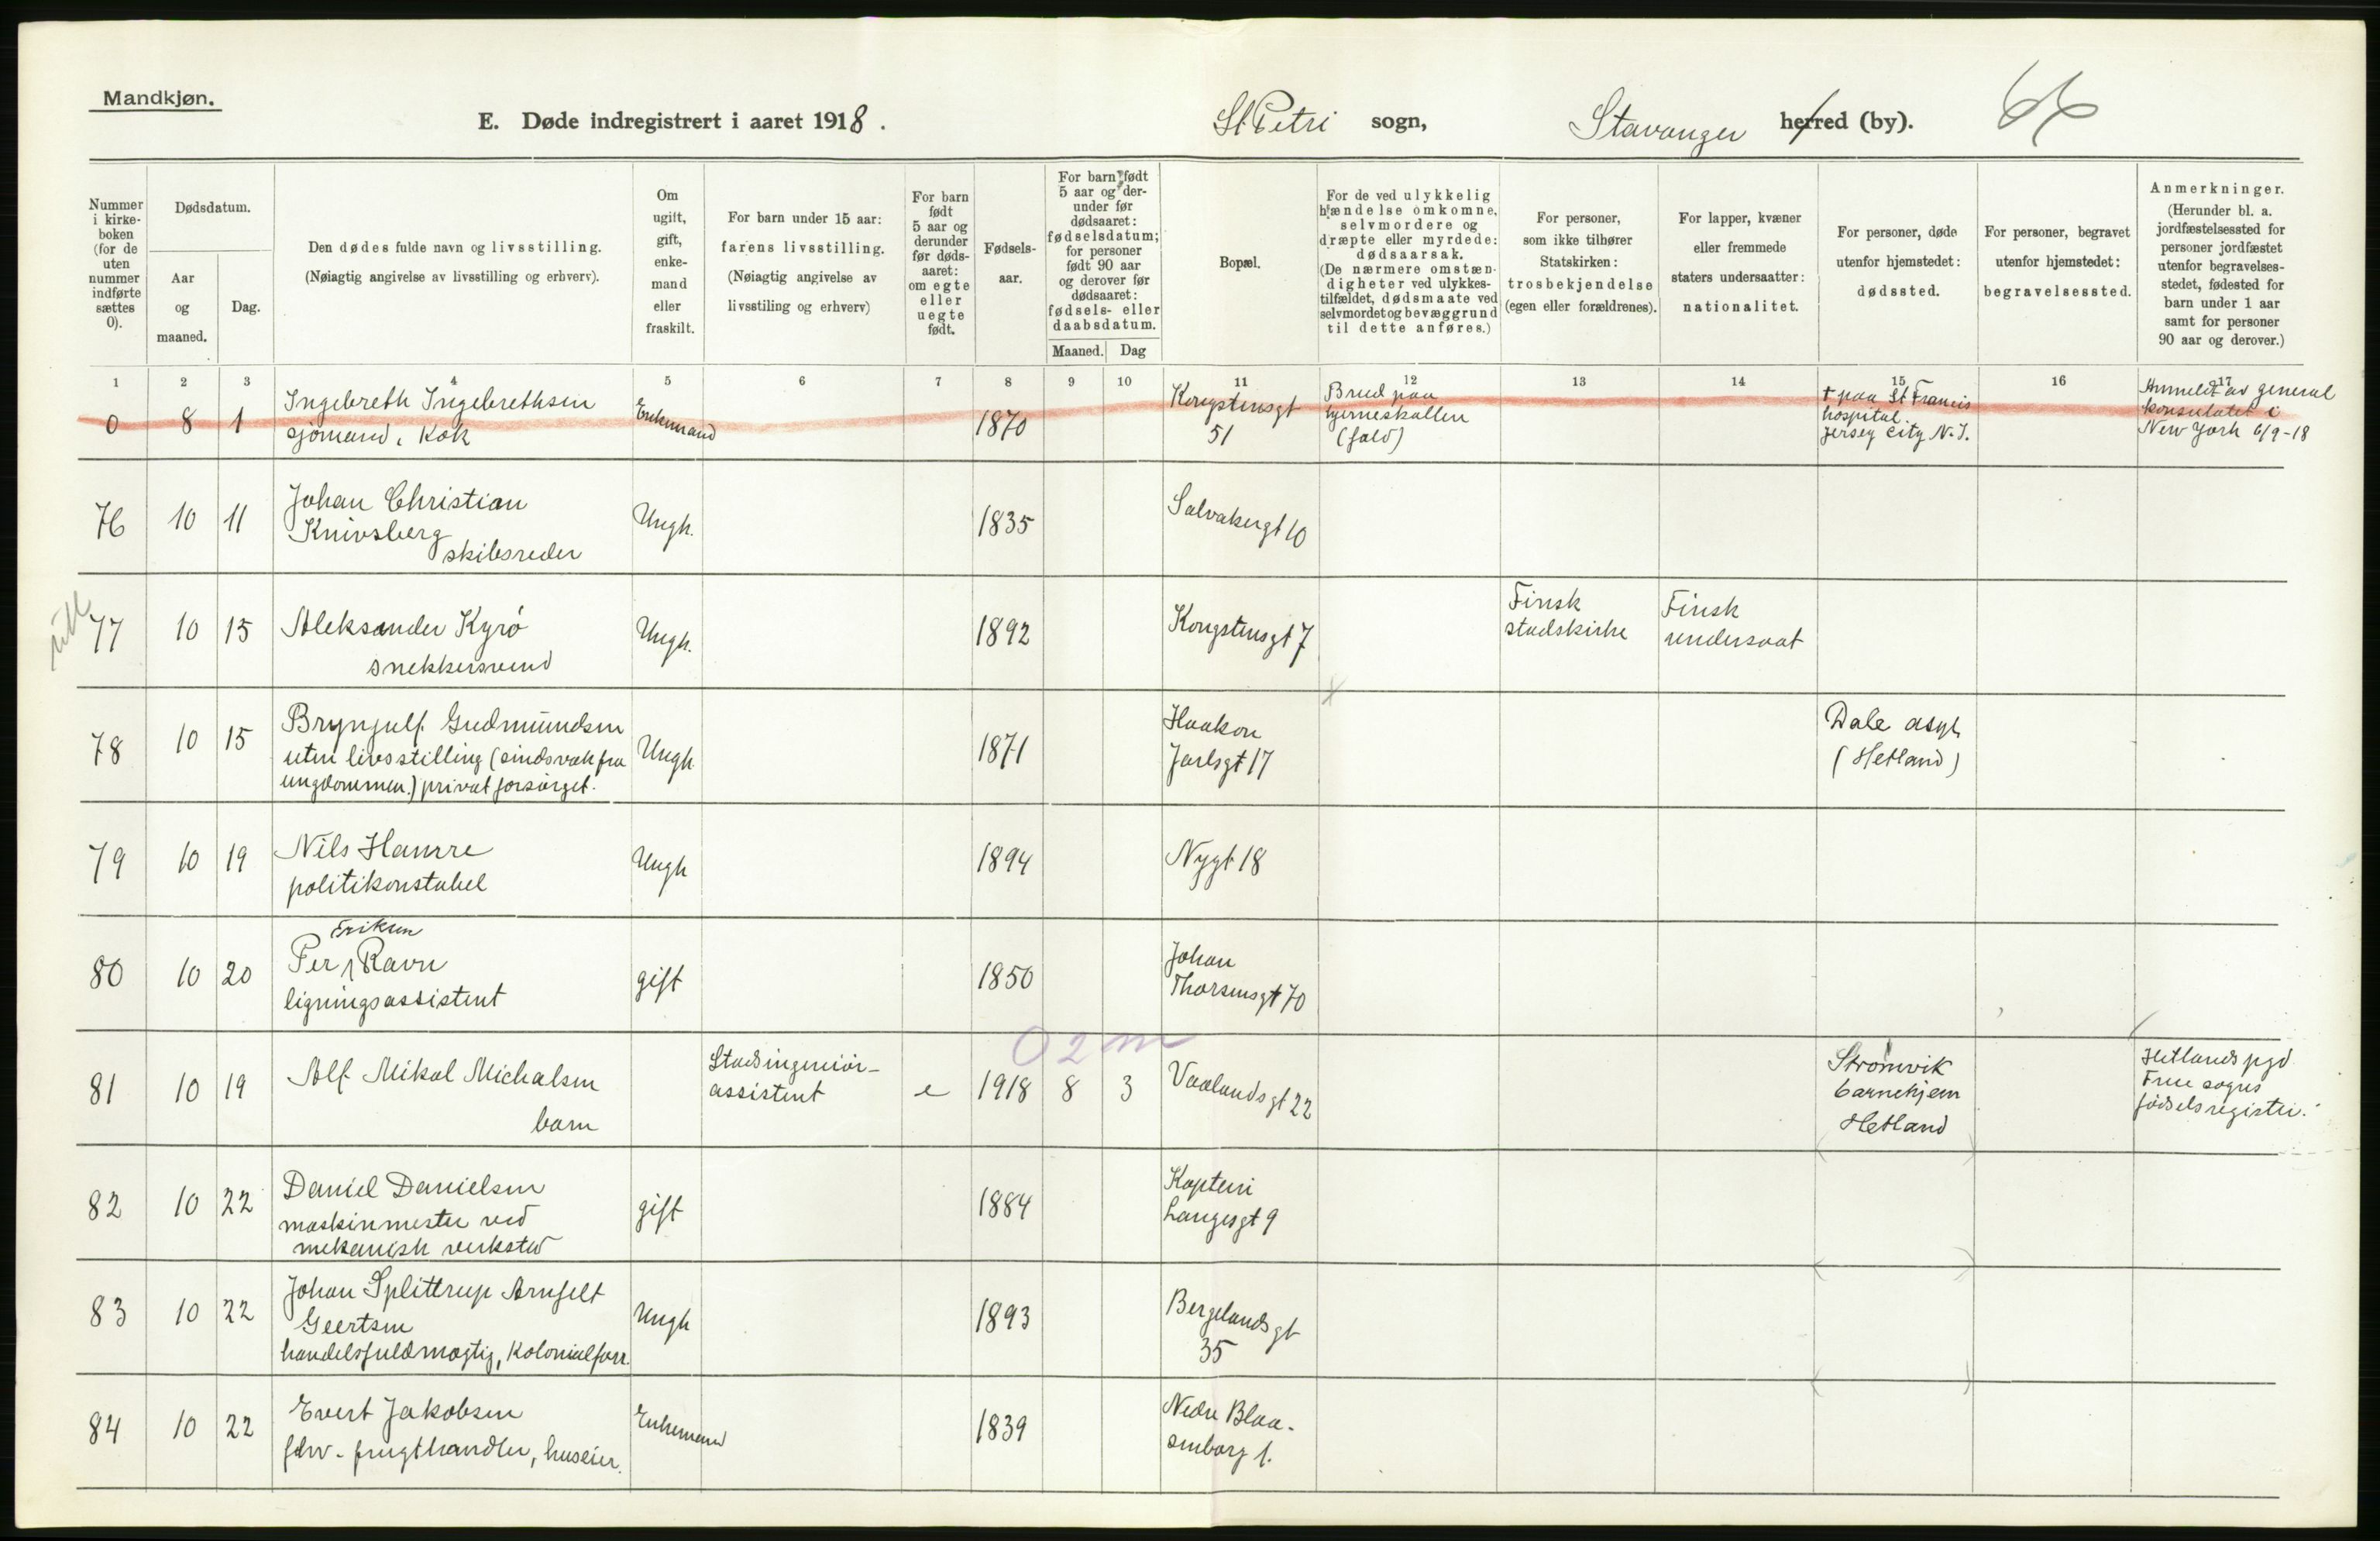 Mandkjøn.
E. Døde indregistrert i aaret 1918.
St. Petri sogn,
Stavanger herred (by).
66
Nummer i kirke-boken (for de uten nummer indførte sættes 0).
Dødsdatum.
Aar og maaned.
Dag.
Den dødes fulde navn og livsstilling.
(Nøiagtig angivelse av livsstilling og erhverv).
Om ugift, gift, enke-mand eller fraskilt.
For barn under 15 aar:
farens livsstilling.
(Nøiagtig angivelse av
livsstiling og erhverv)
For barn født 5 aar og derunder før døds-aaret: om egte eller uegte født.
Fødsels-aar.
For barn født 5 aar og der-under før dødsaaret: fødselsdatum; for personer født 90 aar og derover før dødsaaret: fødsels- eller daabsdatum.
Maaned.
Dag
Bopæl.
For de ved ulykkelig hændelse omkomne, selvmordere og dræpte eller myrdede: dødsaarsak.
(De nærmere omstæn-digheter ved ulykkes-tilfældet, dødsmaate ved selvmordet og bevæggrund til dette anføres.)
For personer, som ikke tilhører Statskirken: trosbekjendelse (egen eller forældrenes).
For lapper, kvæner eller fremmede staters undersaatter: nationalitet.
For personer, døde utenfor hjemstedet: dødssted.
For personer, begravet utenfor hjemstedet: begravelsessted.
Anmerkninger.
(Herunder bl. a. jordfæstelsessted for personer jordfæstet utenfor begravelses-stedet, fødested for barn under 1 aar samt for personer 90 aar og derover.)
1 2 3 4 5 6 7 8 9 10 11 12 13 14 15 16 17
0 8 1 Ingebreth Ingebrethsen
sjømand, Kok
Enkemand 1870 Kongstensgt
51
Brud paa
hjerneskallen
(fald)
† paa St Francis
hospital
Jersey City N.J.
Anmeldt av general
konsulatet i
New York 6/9-18
76 10 11 Johan Christian
Knivsberg
skibsreder
Ungk. 1835 Solvakergt 10
77 10 15 Aleksander Kyrö
snekkersvend
Ungk. 1892 Kongstensgt 7
Finsk
statskirke
Finsk
undersaat
78 10 15 Brynjulf Gudmundsen
uten livsstilling (sindsvak fra
ungdommen.) privat forsørget.
Ungk 1871 Haakon
Jarlsgt 17
Dale asyl
(Hetland)
79 10 19 Nils Hamre
politikonstabel
Ungk 1894 Nygt 18
80 10 20 Eriksen
Per Ravn
ligningsassistent
gift 1850 Johan
Thorsensgt 70
0 2 m
81 10 19 Alf Mikal Michalsen
barn
Stadsingeniör-
assistent
e 1918 8 3 Vaalandsgt 22
Strömvik
barnehjem
Hetland
Hetlands pgd
Frue sogns
fødselsregister.
82 10 22 Daniel Danielsen
maskinmester ved
mekanisk verksted
gift 1884 Kaptein
Langesgt 9
83 10 22 Johan Splittrup Arnfelt
Geertsen
handelsfuldmægtig, Kolonialforr.
Ungk 1893 Bergelandsgt
35
84 10 22 Evert Jakobsen
fhv. frugthandler, huseier.
Enkemand 1839 Nedre Blaa-
senborg 1.